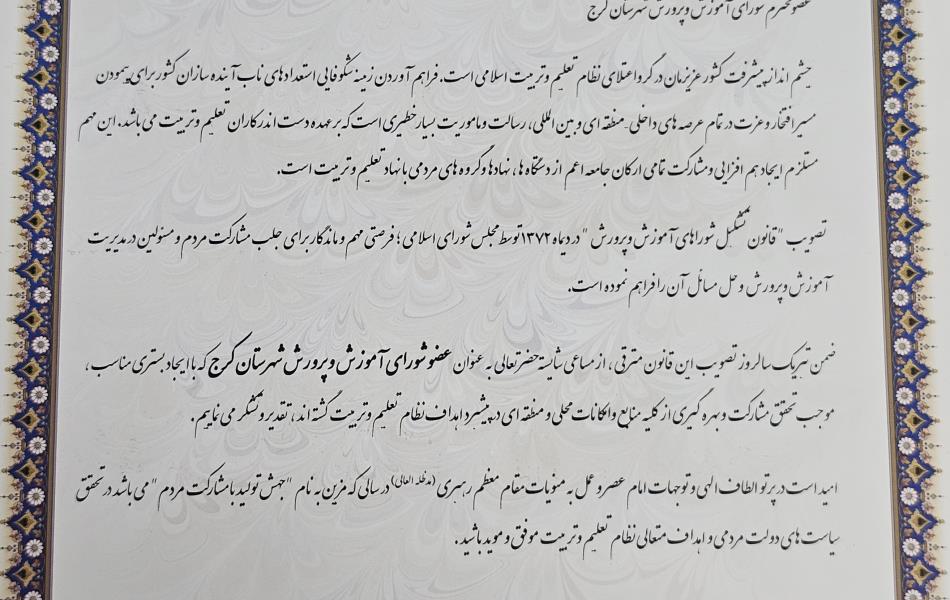 عضو محترم شورای آموزش و پرورش شهرستان کرج
چشم انداز پیشرفت کشور عزیزمان در گرو اعتلای نظام تعلیم و تربیت اسلامی است. فراهم آوردن زمینه شکوفایی استعدادهای ناب آینده سازان کشور برای پیمودن
مسیر افتخار و عزت در تمام عرصه های داخلی، منطقه ای و بین المللی، رسالت و ماموریت بسیار خطیری است که بر عهده دست اندرکاران تعلیم و تربیت می باشد. این مهم
مستلزم ایجاد هم افزایی و مشارکت تمامی ارکان جامعه اعم از دستگاه ها، نهادها و گروه های مردمی با نهاد تعلیم و تربیت است.
تصویب "قانون تشکیل شوراهای آموزش و پرورش" در دیماه ۱۳۷۲ توسط مجلس شورای اسلامی؛ فرصتی مهم و ماندگار برای جلب مشارکت مردم و مسئولین در مدیریت
آموزش و پرورش و حل مسائل آن را فراهم نموده است.
ضمن تبریک سالروز تصویب این قانون مترقی، از مساعی شایسته حضرتعالی به عنوان عضو شورای آموزش و پرورش شهرستان کرج که با ایجاد بستری مناسب،
موجب تحقق مشارکت و بهره گیری از کلیه منابع و امکانات محلی و منطقه ای در پیشبرد اهداف نظام تعلیم و تربیت گشته اند، تقدیر و تشکر می نماییم.
امید است در پرتو الطاف الهی و توجهات امام عصر و عمل به منویات مقام معظم رهبری (مدظله العالی) در سالی که مزین به نام "جهش تولید با مشارکت مردم" می باشد در تحقق
سیاست های دولت مردمی و اهداف متعالی نظام تعلیم و تربیت موفق و موید باشید.